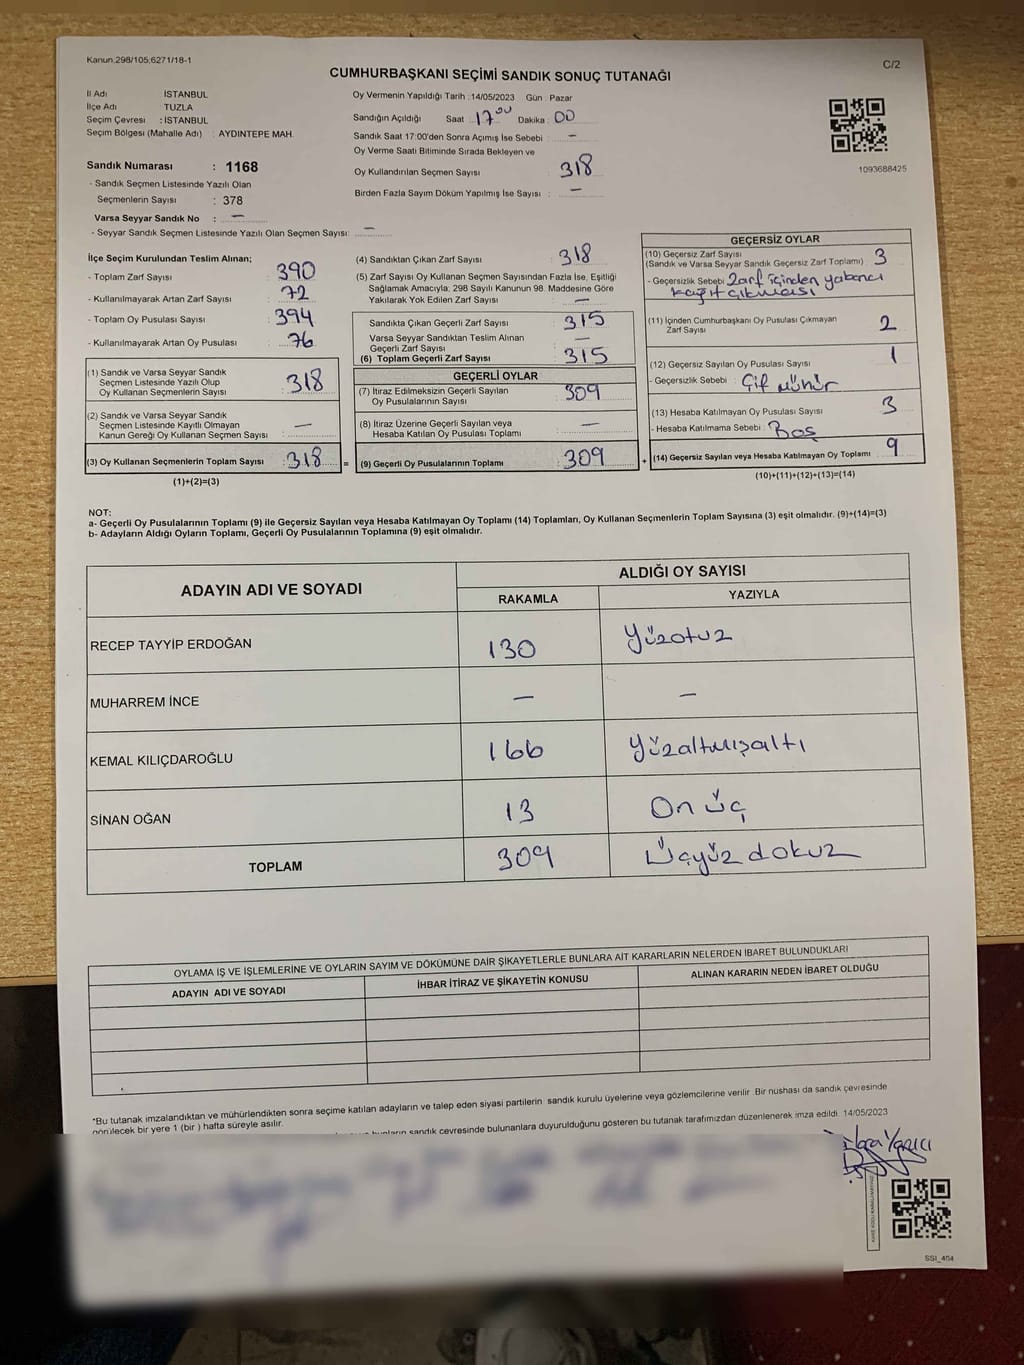 Kanun.298/105;6271/18-1
C/2
CUMHURBAŞKANI SEÇİMİ SANDIK SONUÇ TUTANAĞI
İl Adı İSTANBUL
İlçe Adı : TUZLA
Seçim Çevresi : İSTANBUL
Seçim Bölgesi (Mahalle Adı) : AYDINTEPE MAH.
Sandık Numarası : 1168
- Sandık Seçmen Listesinde Yazılı Olan
Seçmenlerin Sayısı : 378
Varsa Seyyar Sandık No : —
- Seyyar Sandık Seçmen Listesinde Yazılı Olan Seçmen Sayısı: —
Oy Vermenin Yapıldığı Tarih :14/05/2023 Gün : Pazar
Sandığın Açıldığı Saat 17:00 Dakika : 00
Sandık Saat 17:00'den Sonra Açımış İse Sebebi : —
Oy Verme Saati Bitiminde Sırada Bekleyen ve
Oy Kullandırılan Seçmen Sayısı : 318
Birden Fazla Sayım Döküm Yapılmış İse Sayısı : —
1093688425
İlçe Seçim Kurulundan Teslim Alınan;
- Toplam Zarf Sayısı : 390
- Kullanılmayarak Artan Zarf Sayısı : 72
- Toplam Oy Pusulası Sayısı : 394
- Kullanılmayarak Artan Oy Pusulası : 76
(1) Sandık ve Varsa Seyyar Sandık
Seçmen Listesinde Yazılı Olup
Oy Kullanan Seçmenlerin Sayısı : 318
(2) Sandık ve Varsa Seyyar Sandık
Seçmen Listesinde Kayıtlı Olmayan
Kanun Gereği Oy Kullanan Seçmen Sayısı : —
(3) Oy Kullanan Seçmenlerin Toplam Sayısı : 318 =
(1)+(2)=(3)
(4) Sandıktan Çıkan Zarf Sayısı : 318
(5) Zarf Sayısı Oy Kullanan Seçmen Sayısından Fazla İse, Eşitliği
Sağlamak Amacıyla; 298 Sayılı Kanunun 98. Maddesine Göre
Yakılarak Yok Edilen Zarf Sayısı : —
Sandıkta Çıkan Geçerli Zarf Sayısı : 315
Varsa Seyyar Sandıktan Teslim Alınan
Geçerli Zarf Sayısı : —
(6) Toplam Geçerli Zarf Sayısı : 315
GEÇERLİ OYLAR
(7) İtiraz Edilmeksizin Geçerli Sayılan
Oy Pusulalarının Sayısı : 309
(8) İtiraz Üzerine Geçerli Sayılan veya
Hesaba Katılan Oy Pusulası Toplamı : —
(9) Geçerli Oy Pusulalarının Toplamı : 309 +
GEÇERSİZ OYLAR
(10) Geçersiz Zarf Sayısı
(Sandık ve Varsa Seyyar Sandık Geçersiz Zarf Toplamı) : 3
- Geçersizlik Sebebi : Zarf içinden yabancı
kağıt çıkması
(11) İçinden Cumhurbaşkanı Oy Pusulası Çıkmayan
Zarf Sayısı : 2
(12) Geçersiz Sayılan Oy Pusulası Sayısı : 1
- Geçersizlik Sebebi : Çif mühür
(13) Hesaba Katılmayan Oy Pusulası Sayısı : 3
- Hesaba Katılmama Sebebi : Boş
(14) Geçersiz Sayılan veya Hesaba Katılmayan Oy Toplamı : 9
(10)+(11)+(12)+(13)=(14)
NOT:
a- Geçerli Oy Pusulalarının Toplamı (9) ile Geçersiz Sayılan veya Hesaba Katılmayan Oy Toplamı (14) Toplamları, Oy Kullanan Seçmenlerin Toplam Sayısına (3) eşit olmalıdır. (9)+(14)=(3)
b- Adayların Aldığı Oyların Toplamı, Geçerli Oy Pusulalarının Toplamına (9) eşit olmalıdır.
ADAYIN ADI VE SOYADI ALDIĞI OY SAYISI
RAKAMLA YAZIYLA
RECEP TAYYİP ERDOĞAN 130 Yüzotuz
MUHARREM İNCE — —
KEMAL KILIÇDAROĞLU 166 Yüzaltmışaltı
SİNAN OĞAN 13 On üç
TOPLAM 309 Üçyüz dokuz
OYLAMA İŞ VE İŞLEMLERİNE VE OYLARIN SAYIM VE DÖKÜMÜNE DAİR ŞİKAYETLERLE BUNLARA AİT KARARLARIN NELERDEN İBARET BULUNDUKLARI
ADAYIN ADI VE SOYADI İHBAR İTİRAZ VE ŞİKAYETİN KONUSU ALINAN KARARIN NEDEN İBARET OLDUĞU
*Bu tutanak imzalandıktan ve mühürlendikten sonra seçime katılan adayların ve talep eden siyasi partilerin sandık kurulu üyelerine veya gözlemcilerine verilir. Bir nüshası da sandık çevresinde
görülecek bir yere 1 (bir ) hafta süreyle asılır.
sandık çevresinde bulunanlara duyurulduğunu gösteren bu tutanak tarafımızdan düzenlenerek imza edildi. 14/05/2023
SSI_404